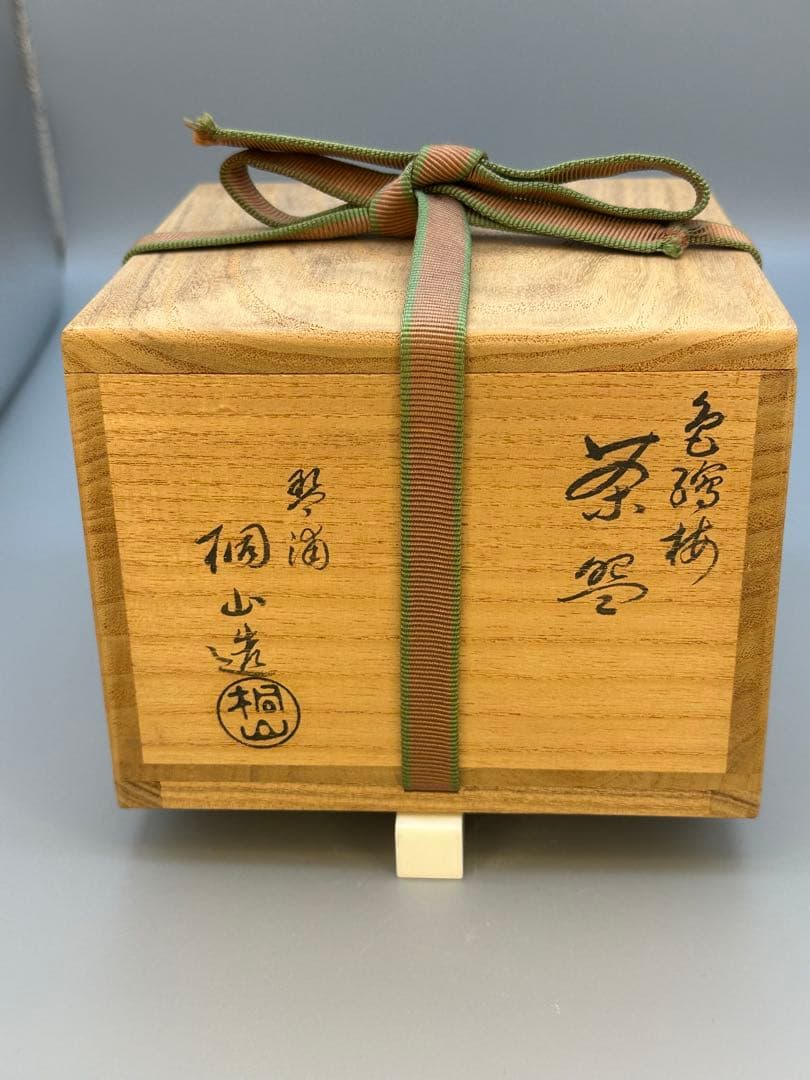 色繪梅
茶盌
琴浦
桐山造
桐山